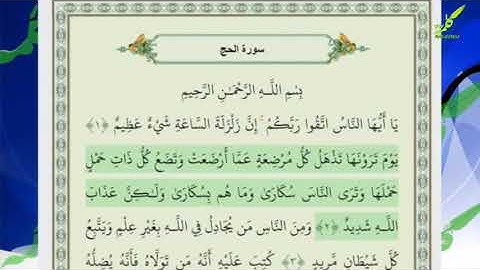 سورة الحج
بِسْمِ اللَّـهِ الرَّحْمَـٰنِ الرَّحِيمِ
يَا أَيُّهَا النَّاسُ اتَّقُوا رَبَّكُمْ ۚ إِنَّ زَلْزَلَةَ السَّاعَةِ شَيْءٌ عَظِيمٌ ﴿١﴾
يَوْمَ تَرَوْنَهَا تَذْهَلُ كُلُّ مُرْضِعَةٍ عَمَّا أَرْضَعَتْ وَتَضَعُ كُلُّ ذَاتِ حَمْلٍ
حَمْلَهَا وَتَرَى النَّاسَ سُكَارَىٰ وَمَا هُم بِسُكَارَىٰ وَلَـٰكِنَّ عَذَابَ
اللَّـهِ شَدِيدٌ ﴿٢﴾ وَمِنَ النَّاسِ مَن يُجَادِلُ فِي اللَّـهِ بِغَيْرِ عِلْمٍ وَيَتَّبِعُ
كُلَّ شَيْطَانٍ مَّرِيدٍ ﴿٣﴾ كُتِبَ عَلَيْهِ أَنَّهُ مَن تَوَلَّاهُ فَأَنَّهُ يُضِلُّهُ